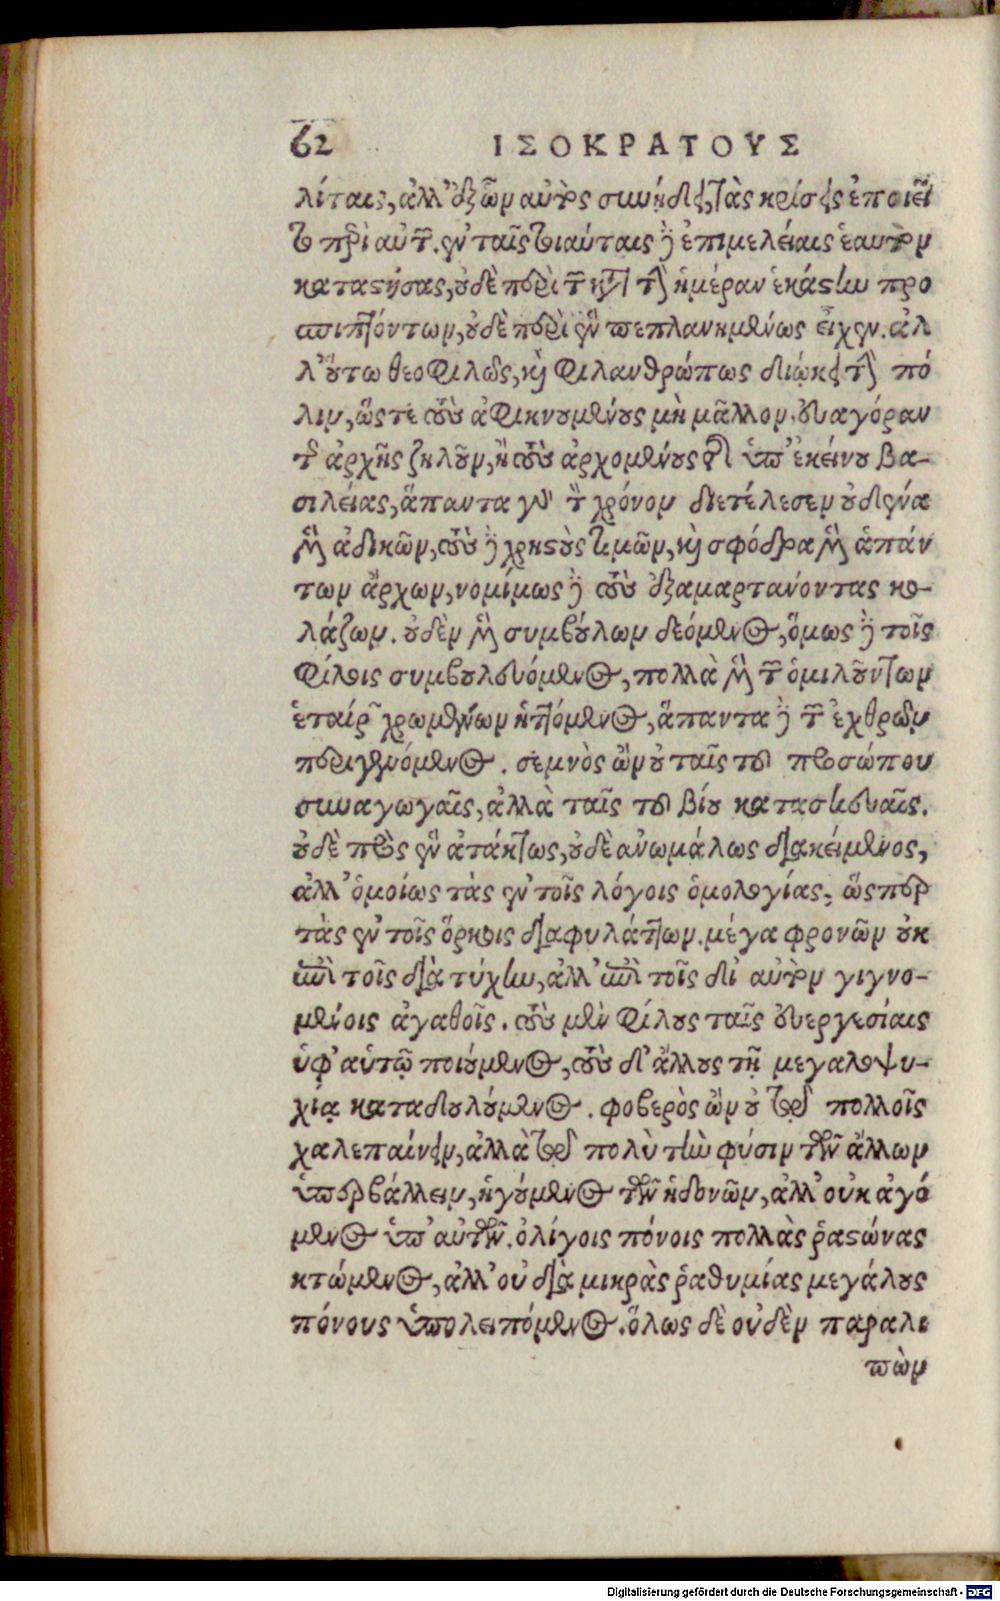 62 ΙΣΟΚΡΑΤΟΥΣ
λίταις, ἀλλ' ἐξ ὧν αὐτὸς συνῄδει, τὰς κρίσεις ἐποιεῖ
το περὶ αὐτῶν. ἐν ταῖς τοιαύταις δὲ ἐπιμελείαις ἑαυτὸν
καταστήσας, οὐδὲ περὶ τῶν κατὰ τὴν ἡμέραν ἑκάστην προ
σπιπτόντων, οὐδὲ περὶ ἓν πεπλανημένως εἶχεν. ἀλ
λ' οὕτω θεοφιλῶς, καὶ φιλανθρώπως διῴκει τὴν πό
λιν, ὥστε τοὺς ἀφικνουμένους μὴ μᾶλλον εὐαγόραν
τῆς ἀρχῆς ζηλοῦν, ἢ τοὺς ἀρχομένους τῆς ὑπ' ἐκείνου βα-
σιλείας, ἅπαντα γὰρ τὸν χρόνον διετέλεσεν οὐδένα
μὲν ἀδικῶν, τοὺς δὲ χρηστοὺς τιμῶν, καὶ σφόδρα μὲν ἁπάν
των ἄρχων, νομίμως δὲ τοὺς ἐξαμαρτάνοντας κο-
λάζων. οὐδὲν μὲν συμβούλων δεόμενος, ὅμως δὲ τοῖς
φίλοις συμβουλευόμενος, πολλὰ μὲν τῶν ὁμιλούντων
ἑταίρων χρωμένων ἡττόμενος, ἅπαντα δὲ τῶν ἐχθρῶν
περιγενόμενος. σεμνὸς ὢν οὐ ταῖς τοῦ προσώπου
συναγωγαῖς, ἀλλὰ ταῖς τοῦ βίου κατασκευαῖς.
οὐδὲ πρὸς ἓν ἀτάκτως, οὐδὲ ἀνωμάλως διακείμενος,
ἀλλ' ὁμοίως τὰς ἐν τοῖς λόγοις ὁμολογίας, ὥσπερ
τὰς ἐν τοῖς ὅρκοις διαφυλάττων. μέγα φρονῶν οὐκ
ἐπὶ τοῖς διὰ τύχην, ἀλλ' ἐπὶ τοῖς δι' αὐτὸν γιγνο-
μένοις ἀγαθοῖς. τοὺς μὲν φίλους ταῖς εὐεργεσίαις
ὑφ' αὑτῷ ποιούμενος, τοὺς δ' ἄλλους τῇ μεγαλοψυ-
χίᾳ καταδουλούμενος. φοβερὸς ὢν οὐ τῷ πολλοῖς
χαλεπαίνειν, ἀλλὰ τῷ πολὺ τὴν φύσιν τῶν ἄλλων
ὑπερβάλλειν, ἡγούμενος τῶν ἡδονῶν, ἀλλ' οὐκ ἀγό
μενος ὑπ' αὐτῶν. ὀλίγοις πόνοις πολλὰς ῥαστώνας
κτώμενος, ἀλλ' οὐ διὰ μικρὰς ῥαθυμίας μεγάλους
πόνους ὑπολειπόμενος. ὅλως δὲ οὐδὲν παραλι
πὼν
Digitalisierung gefördert durch die Deutsche Forschungsgemeinschaft - DFG